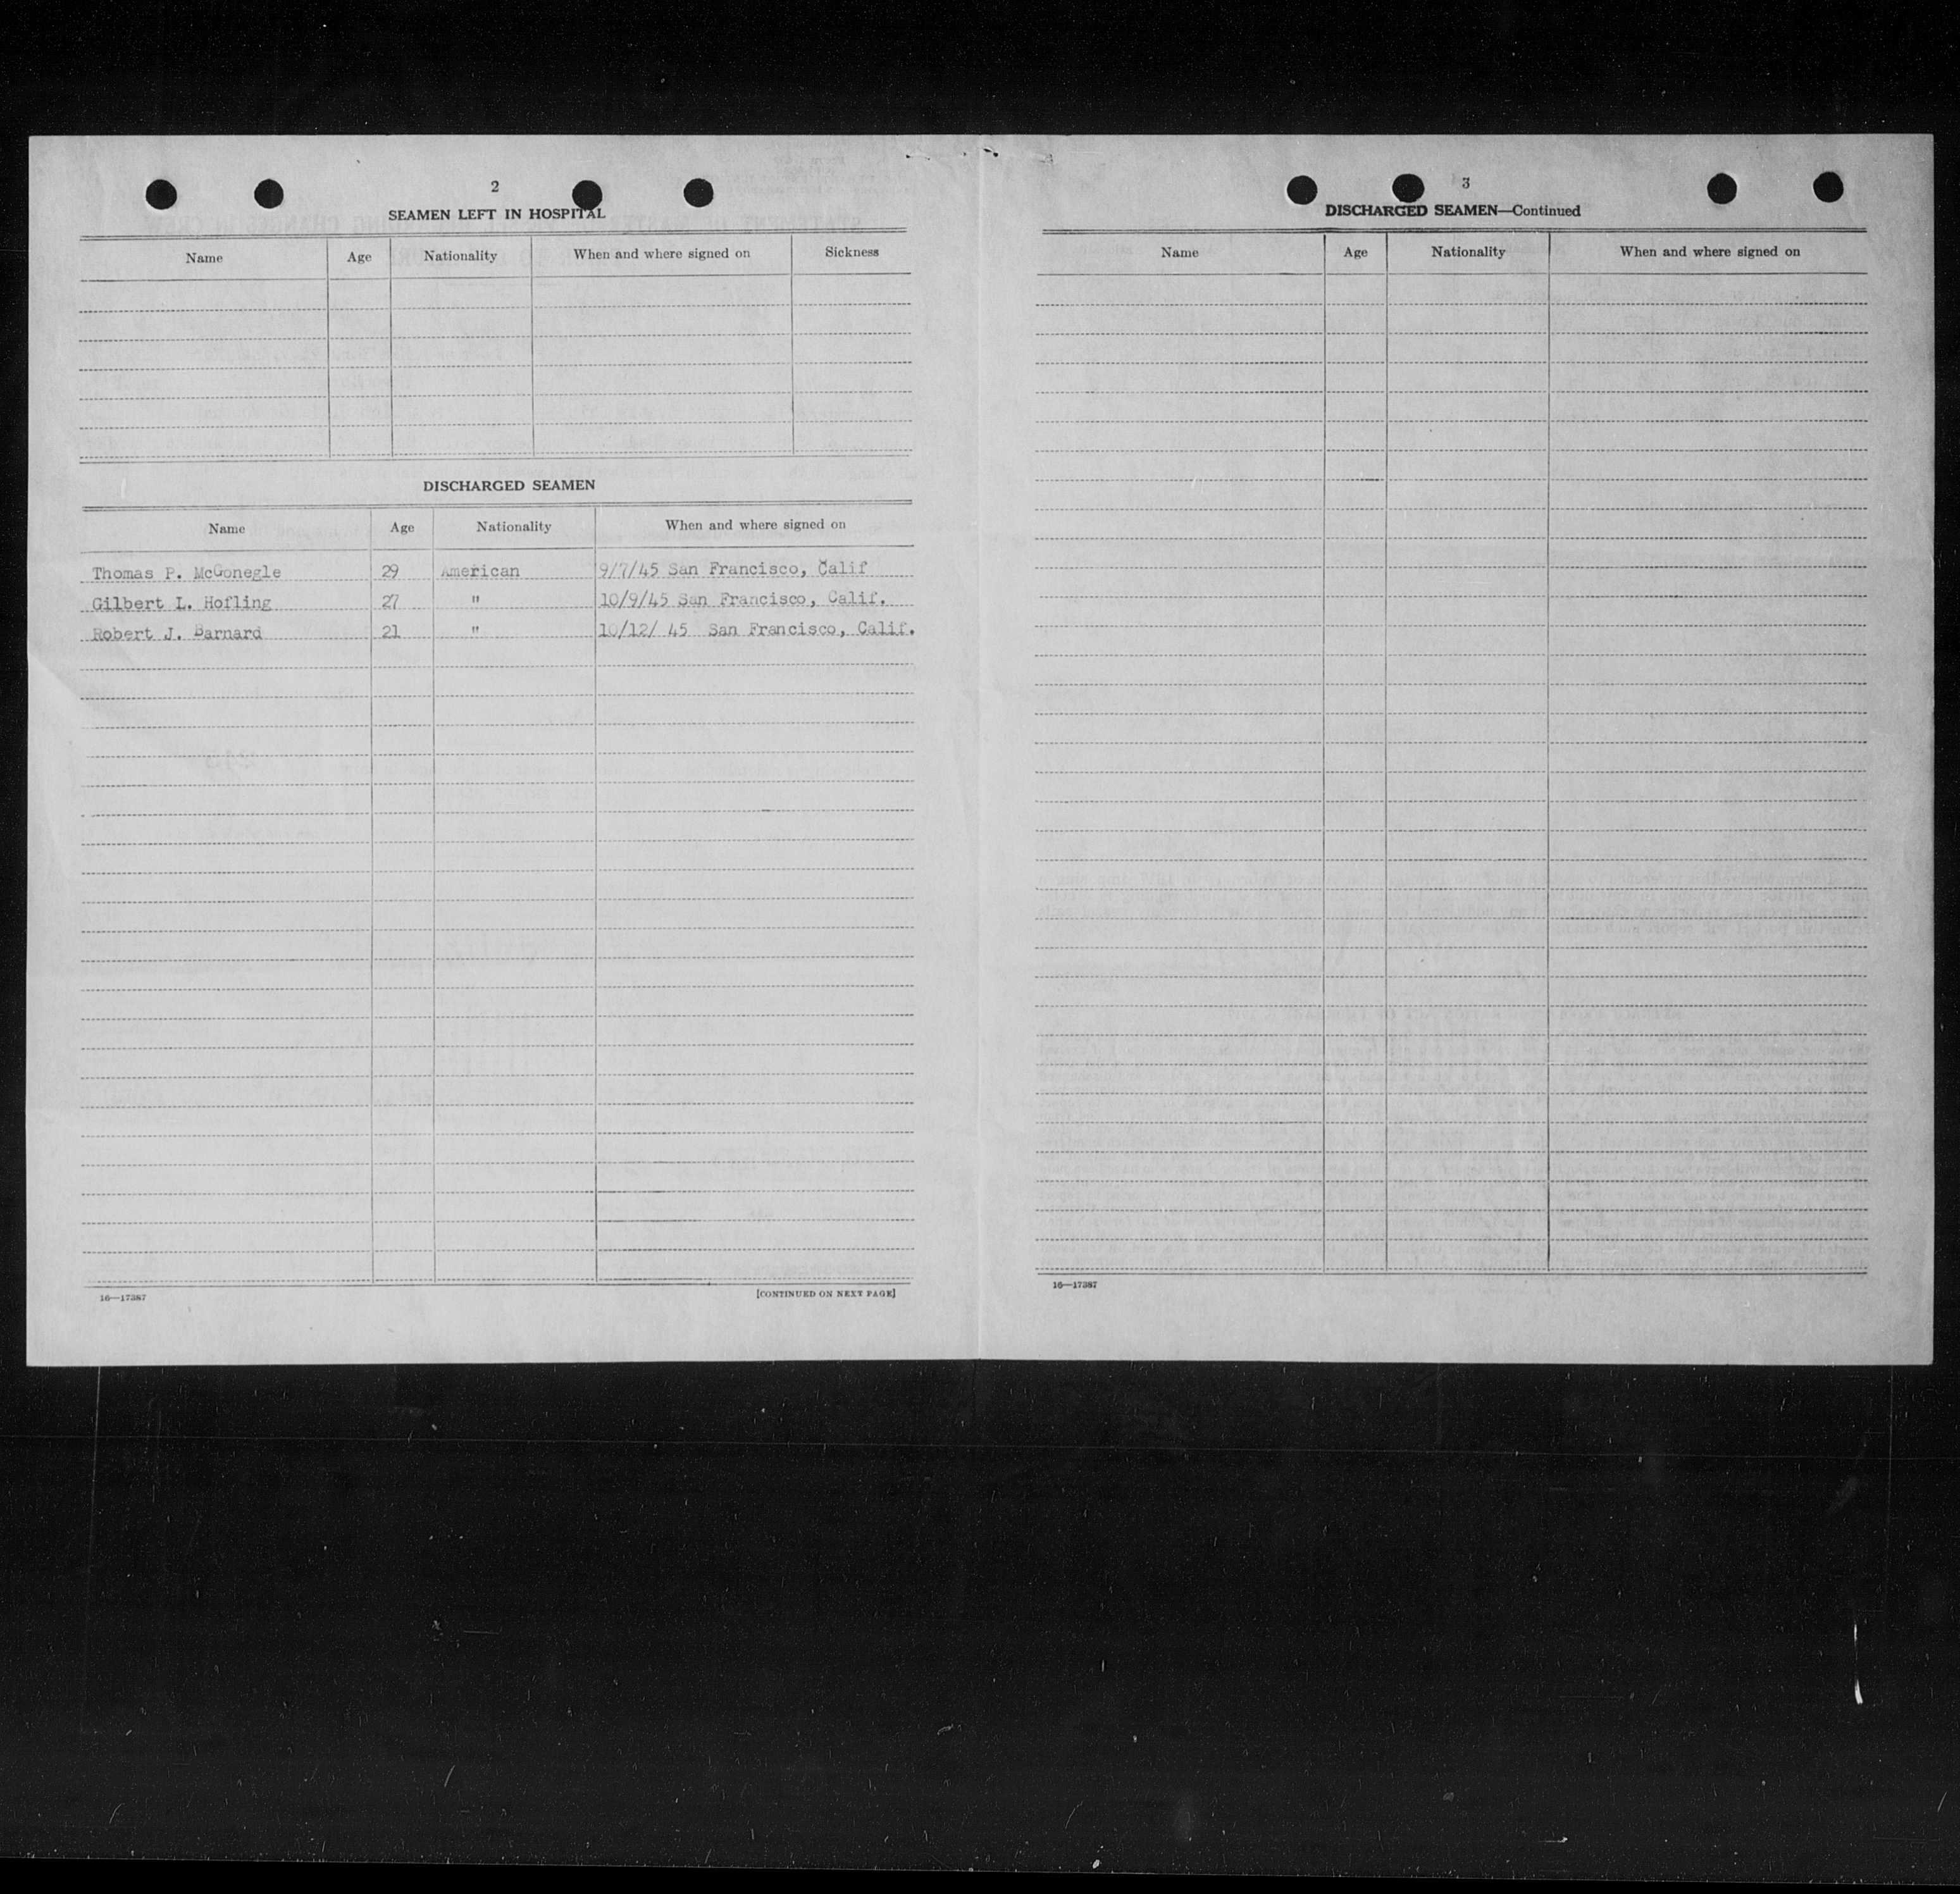 2
SEAMEN LEFT IN HOSPITAL
Name Age Nationality When and where signed on Sickness
DISCHARGED SEAMEN
Name Age Nationality When and where signed on
Thomas P. McGonegle 29 American 9/7/45 San Francisco, Calif
Gilbert L. Hofling 27 " 10/9/45 San Francisco, Calif.
Robert J. Barnard 21 " 10/12/ 45 San Francisco, Calif.
16—17387 [CONTINUED ON NEXT PAGE]
3
DISCHARGED SEAMEN—Continued
Name Age Nationality When and where signed on
16—17387